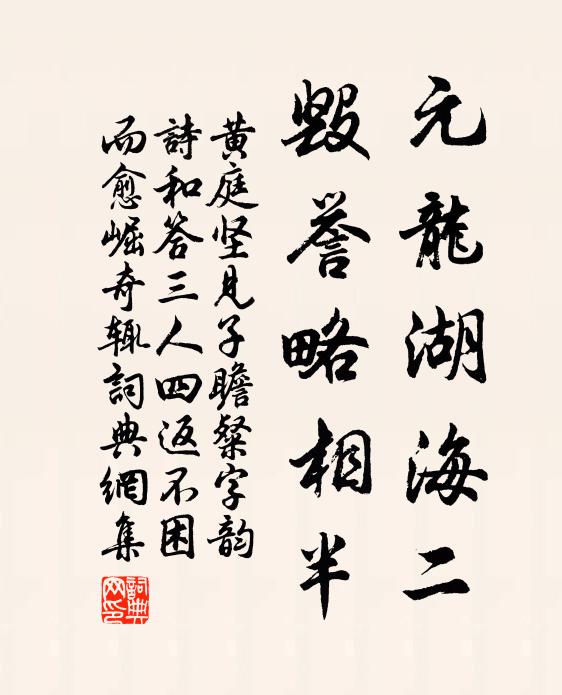 元龍湖海二
毀誉略相半
黄庭坚見子瞻粲字韵
詩和答三人四返不困
而愈崛奇輒詞典網集
詞典网印